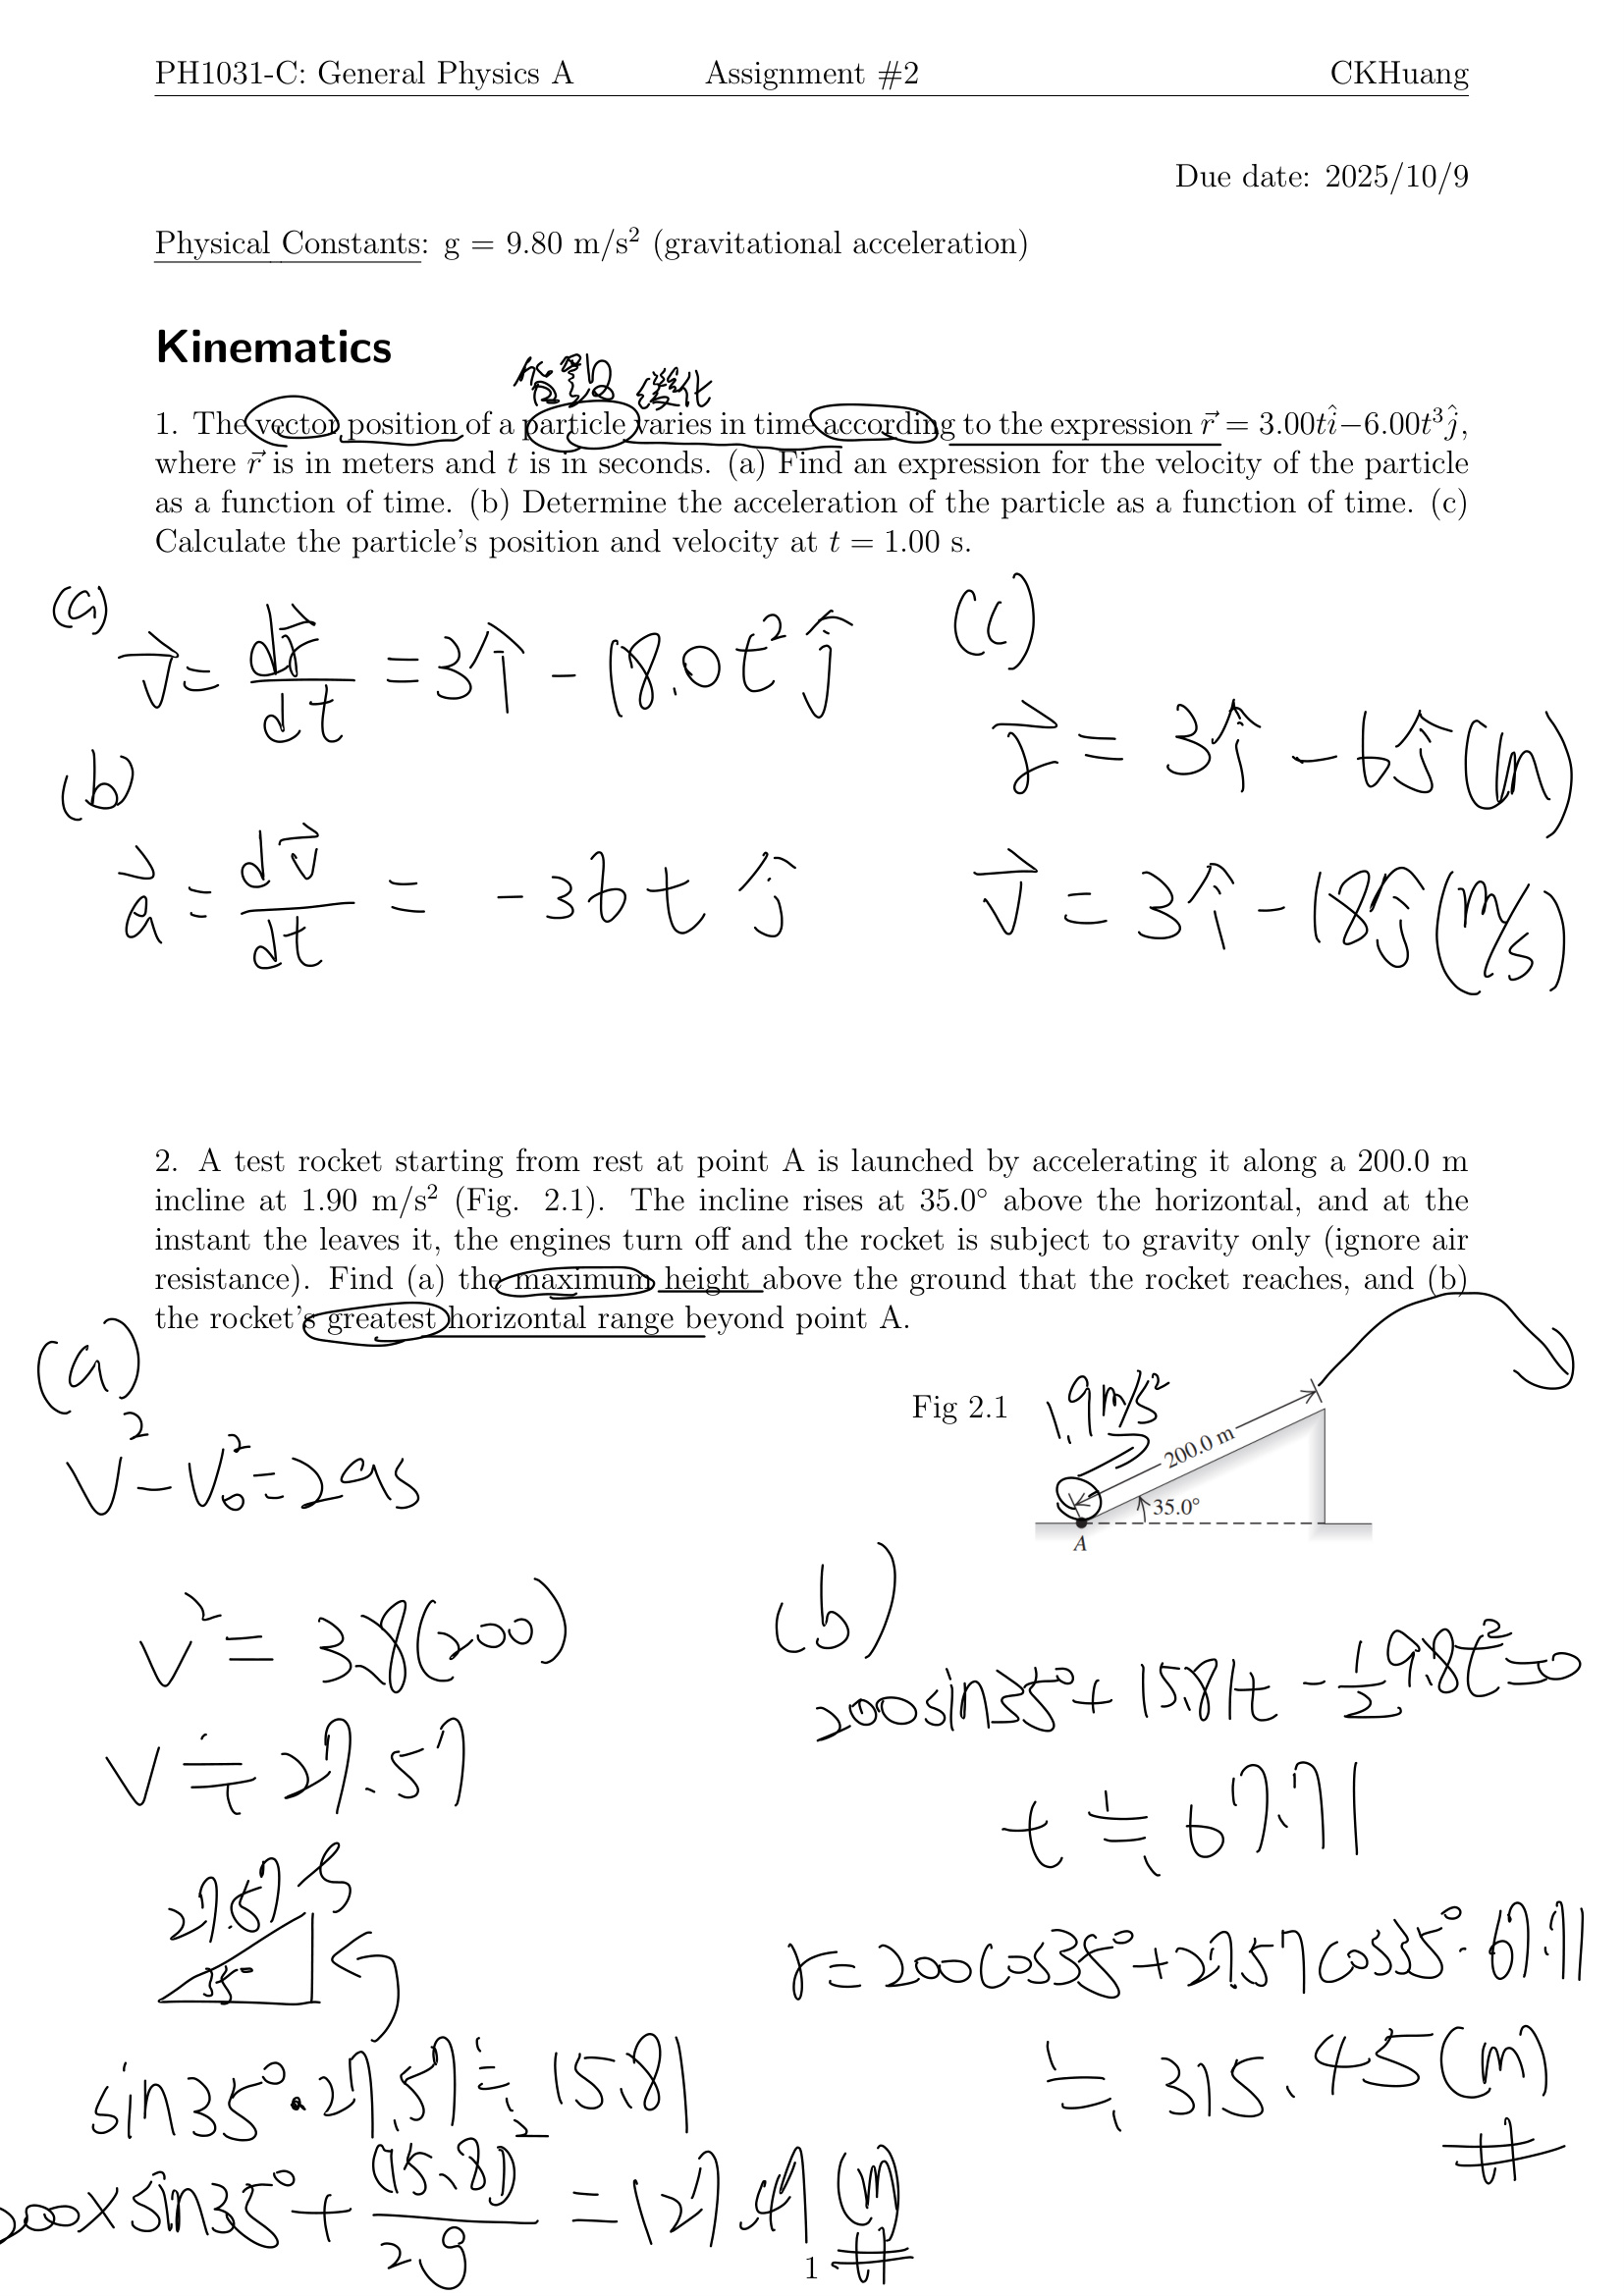 PH1031-C: General Physics A Assignment #2 CKHuang
Due date: 2025/10/9
Physical Constants: g = 9.80 m/s² (gravitational acceleration)
Kinematics
變化
1. The vector position of a particle varies in time according to the expression r⃗ = 3.00tî−6.00t³ĵ,
where r⃗ is in meters and t is in seconds. (a) Find an expression for the velocity of the particle
as a function of time. (b) Determine the acceleration of the particle as a function of time. (c)
Calculate the particle's position and velocity at t = 1.00 s.
(a)
v⃗ = dr⃗/dt = 3î - 18.0t²ĵ
(b)
a⃗ = dv⃗/dt = -36tĵ
(c)
r⃗ = 3î - 6ĵ (m)
v⃗ = 3î - 18ĵ (m/s)
2. A test rocket starting from rest at point A is launched by accelerating it along a 200.0 m
incline at 1.90 m/s² (Fig. 2.1). The incline rises at 35.0° above the horizontal, and at the
instant the leaves it, the engines turn off and the rocket is subject to gravity only (ignore air
resistance). Find (a) the maximum height above the ground that the rocket reaches, and (b)
the rocket's greatest horizontal range beyond point A.
Fig 2.1
1.9m/s²
200.0 m
35.0°
A
(a)
v² - v₀² = 2as
v² = 3.8(200)
v ≒ 27.57
27.57
35°
sin35°·27.57 ≒ 15.81
200×sin35° + (15.81)²/2g = 127.47 (m)
#
(b)
200sin35° + 15.81t - ½9.8t² = 0
t ≒ 67.71
r = 200cos35° + 27.57cos35°·67.71
≒ 315.45 (m)
#
1